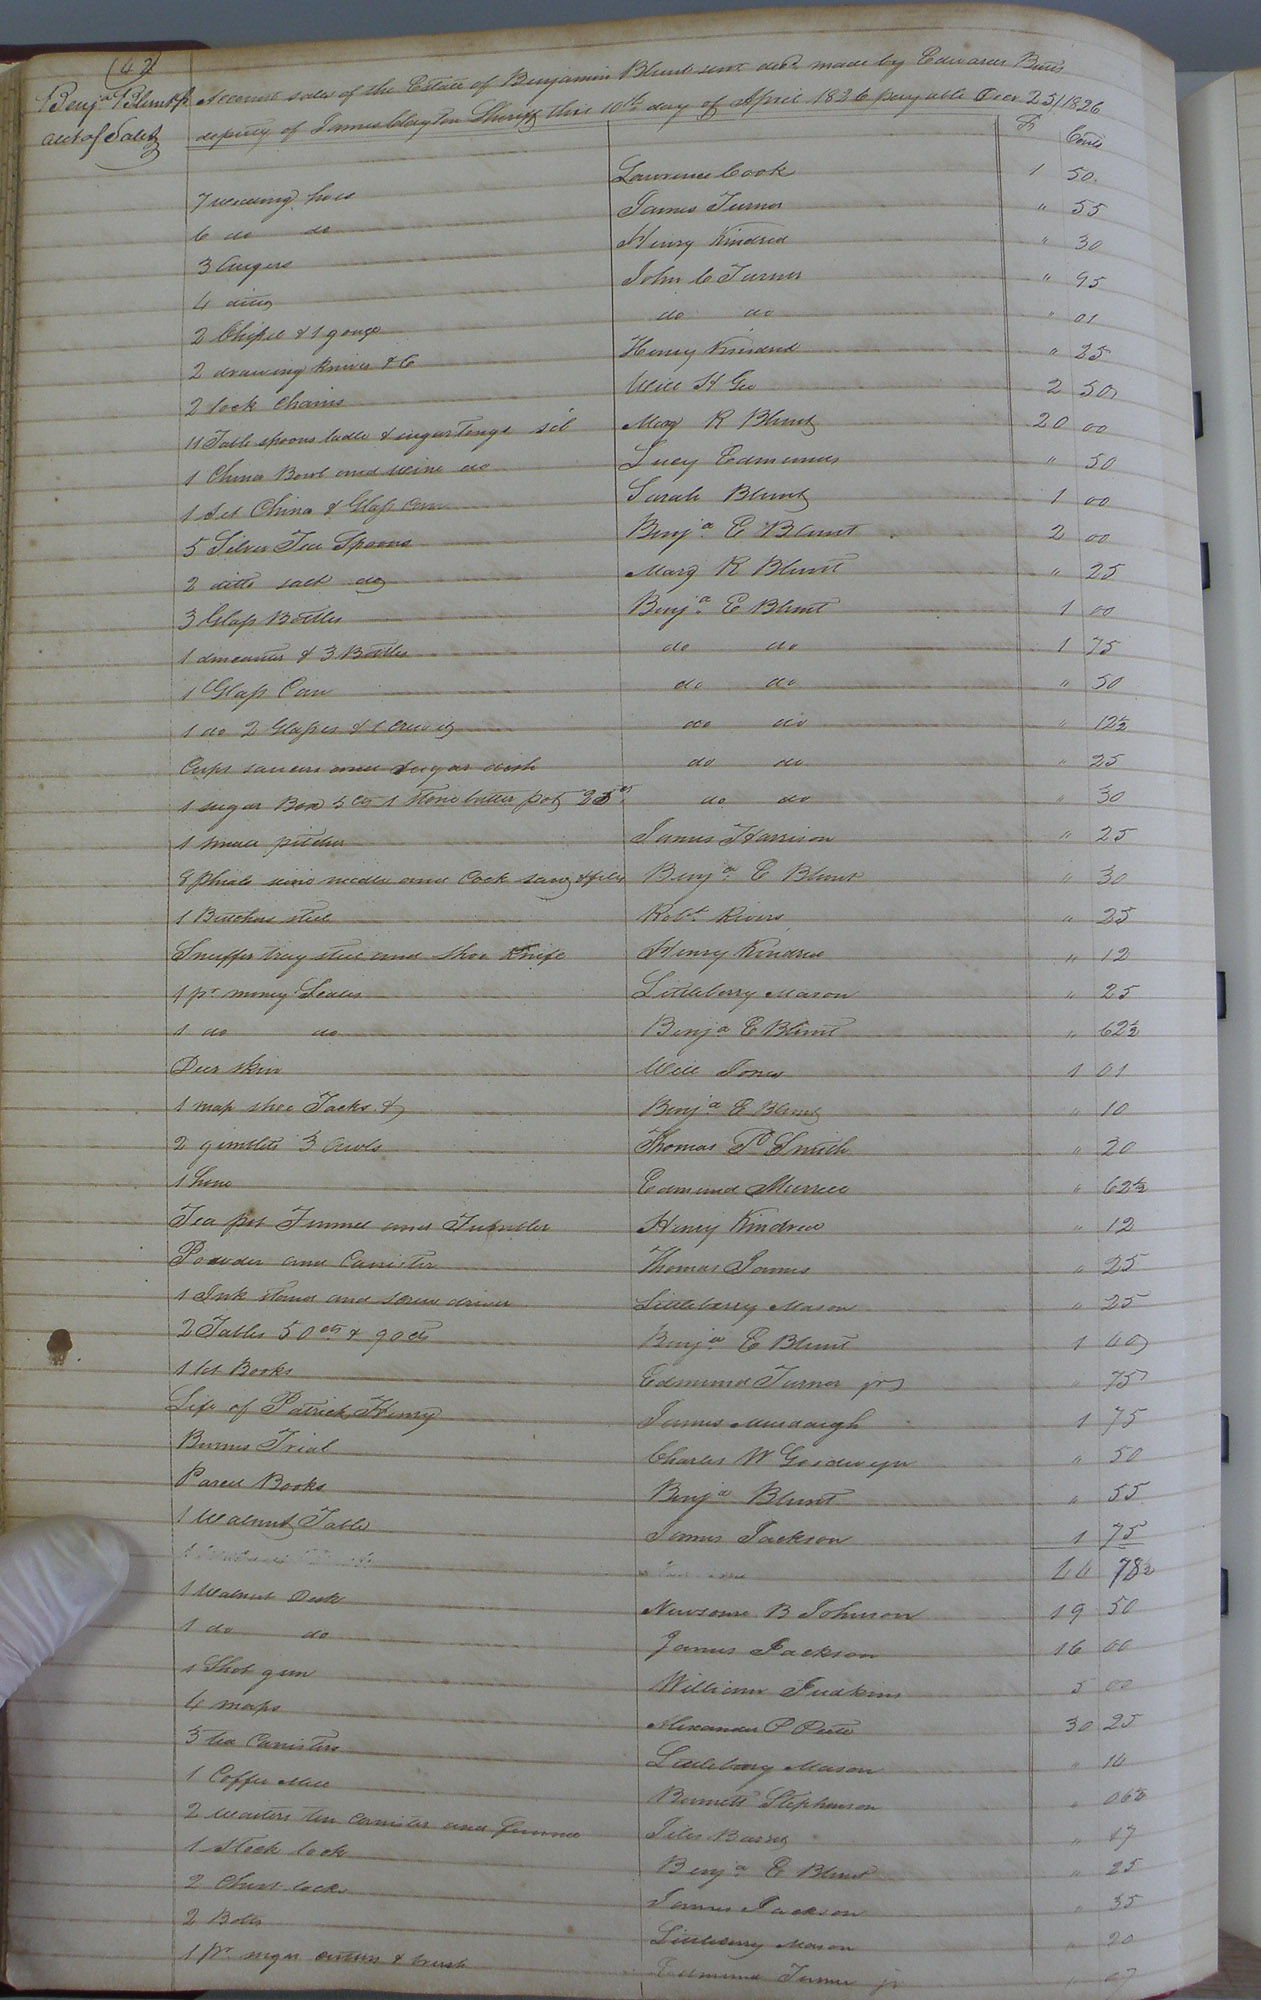 (42)
Benja Blunts Account sales of the Estate of Benjamin Blunt senr decd made by Edward Butts
acct of Sales deputy of James Clayton Sheriff this 10th day of April 1826 payable Decr 25/1826
$ Cents
7 weeding hoes Lawrence Cook 1 50
6 do do James Turner " 55
3 Augers Henry Kindred " 30
4 ditto John C Turner " 95
2 Chisel & 1 gouge do do " 01
2 drawing knives &C Henry Kindred " 25
2 lock Chains Will H Gee 2 50
11 Table spoons ladle & sugar tongs sil Mary R Blunt 20 00
1 China Bowl and wine do Lucy Edmunds " 50
1 set China & Glass Can Sarah Blunt 1 00
5 Silver Tea Spoons Benja E Blunt 2 00
2 ditto salt do Mary R Blunt " 25
3 Glass Bottles Benja E Blunt 1 00
1 decanter & 3 Bottles do do 1 75
1 Glass Can do do " 50
1 do 2 Glasses & 1 Cruet do do " 12½
Cups saucers and sugar dish do do " 25
1 sugar Box 5 cts 1 Stone butter pot 25cts do do " 30
1 small pitcher James Harrison " 25
8 Phials needle and Cock & files Benja E Blunt " 30
1 Butchers steel Robt Rivers " 25
Snuffer tray steel and Shoe Knife Henry Kindred " 12
1 pr money Scales Littleberry Mason " 25
1 do do Benja E Blunt " 62½
Deer skin Will Jones 1 01
1 map shoe Tacks & Benja E Blunt " 10
2 gimblets 3 Awls Thomas P Smith " 20
1 hone Edmund Murrell " 62½
Tea pot Funnel and Tumbler Henry Kindred " 12
Powder and Canister Thomas James " 25
1 Ink stand and screw driver Littleberry Mason " 25
2 Tables 50 cts & 90 cts Benja E Blunt 1 40
1 lot Books Edmund Turner jr " 75
Life of Patrick Henry James Murdaugh 1 75
Burrs Trial Charles W Goodwyn " 50
Parcel Books Benja Blunt " 55
1 Walnut Table James Jackson 1 75
44 78½
1 Walnut Desk Newsome B Johnson 19 50
1 do do James Jackson 16 00
1 Shot gun William Judkins 5 00
4 maps Alexander P Peete 30 25
3 tea Canisters Littleberry Mason " 14
1 Coffee Mill Bennett Stephenson " 06½
2 Waiters tin Canister and funnel Barns " 47
1 Stock lock Benja E Blunt " 25
2 Chest locks James Jackson " 35
2 Bolts Littleberry Mason " 20
1 pr & brush Edmund Turner jr " 07